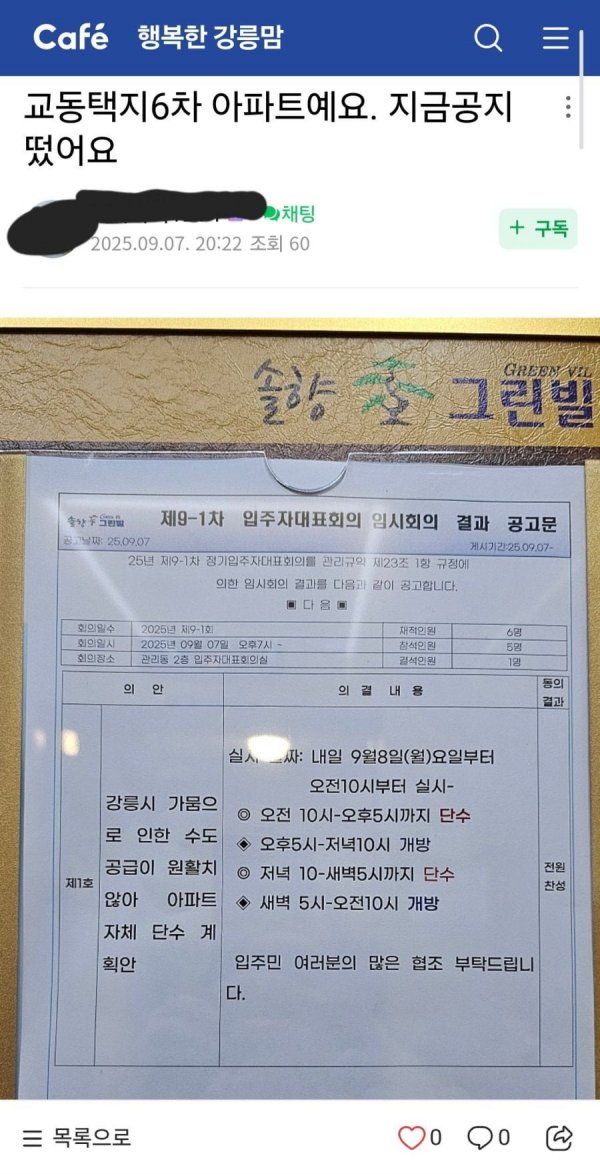 Café 행복한 강릉맘
교동택지6차 아파트예요. 지금공지
떴어요
채팅
2025.09.07. 20:22 조회 60
+ 구독
GREEN VIL
솔향 그린빌
솔향 그린빌 제9-1차 입주자대표회의 임시회의 결과 공고문
공고날짜: 25.09.07 게시기간:25.09.07-
25년 제9-1차 정기입주자대표회의를 관리규약 제23조 1항 규정에
의한 임시회의 결과를 다음과 같이 공고합니다.
▣ 다 음 ▣
회의일수 2025년 제9-1회 재적인원 6명
회의일시 2025년 09월 07일 오후7시 ~ 참석인원 5명
회의장소 관리동 2층 입주자대표회의실 결석인원 1명
의 안 의 결 내 용 동의
결과
제1호
강릉시 가뭄으
로 인한 수도
공급이 원활치
않아 아파트
자체 단수 계
획안
짜: 내일 9월8일(월)요일부터
오전10시부터 실시-
◎ 오전 10시-오후5시까지 단수
◈ 오후5시-저녁10시 개방
◎ 저녁 10-새벽5시까지 단수
◈ 새벽 5시-오전10시 개방
입주민 여러분의 많은 협조 부탁드립니
다.
전원
찬성
목록으로
0
0